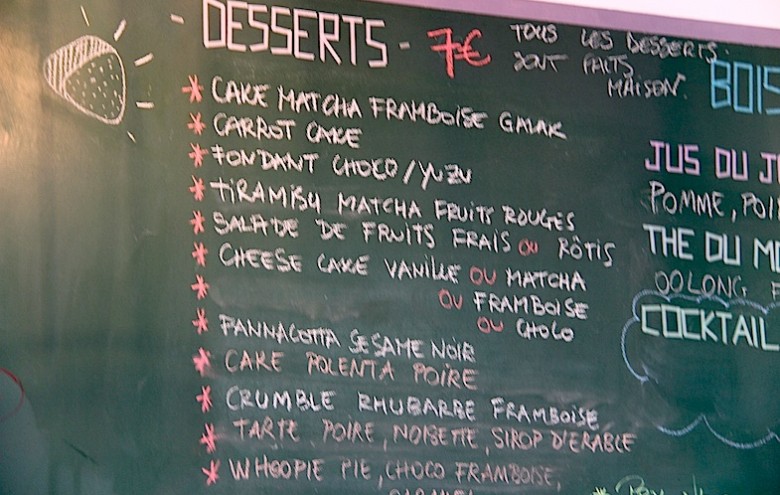 DESSERTS - 7€
TOUS LES DESSERTS
SONT FAITS
MAISON.
* CAKE MATCHA FRAMBOISE GALAK
* CARROT CAKE
* FONDANT CHOCO/YUZU
* TIRAMISU MATCHA FRUITS ROUGES
* SALADE DE FRUITS FRAIS OU RÔTIS
* CHEESE CAKE VANILLE OU MATCHA
* OU FRAMBOISE
OU CHOCO
* PANNACOTTA SESAME NOIR
* CAKE POLENTA POIRE
* CRUMBLE RHUBARBE FRAMBOISE
* TARTE POIRE, NOISETTE, SIROP D'ERABLE
* WHOOPIE PIE, CHOCO FRAMBOISE,
BOIS
JUS DU J
POMME, POI
THE DU MO
OOLONG
COCKTAIL